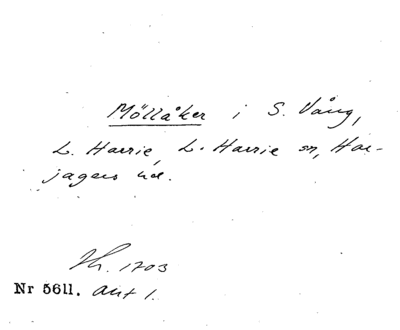 Mölläker i S. Vång,
L. Harrie, L. Harrie sn, Har-
jagers hd.
Th. 1703
Nr 5611. akt 1.